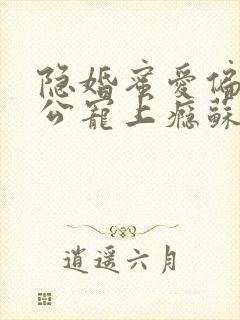 隐婚蜜爱偏
公宠上瘾蘇
逍遥六月